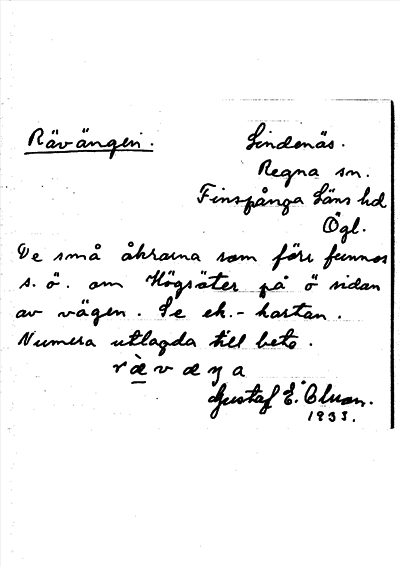 Rävängen.
Lindenäs.
Regna sn.
Finspånga Läns hd
Ögl.
De små åkrarna som förr funnos
s. ö. om Högsäter på ö sidan
av vägen. Se ek.-kartan.
Numera utlagda till bete.
rævæŋa
Gustaf E.
1933.